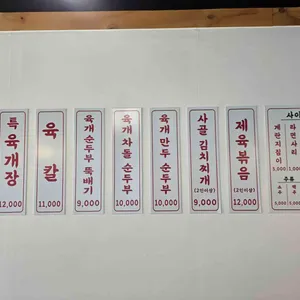 특 육개장
12,000
육칼
11,000
육개 순두부 뚝배기
9,000
육개 차돌 순두부
10,000
육개 만두 순두부
10,000
사골 김치찌개
(2인이상)
9,000
제육볶음
(2인이상)
12,000
사이
계란지짐이
라면사리
1,000
주류
소주
맥주
5,000